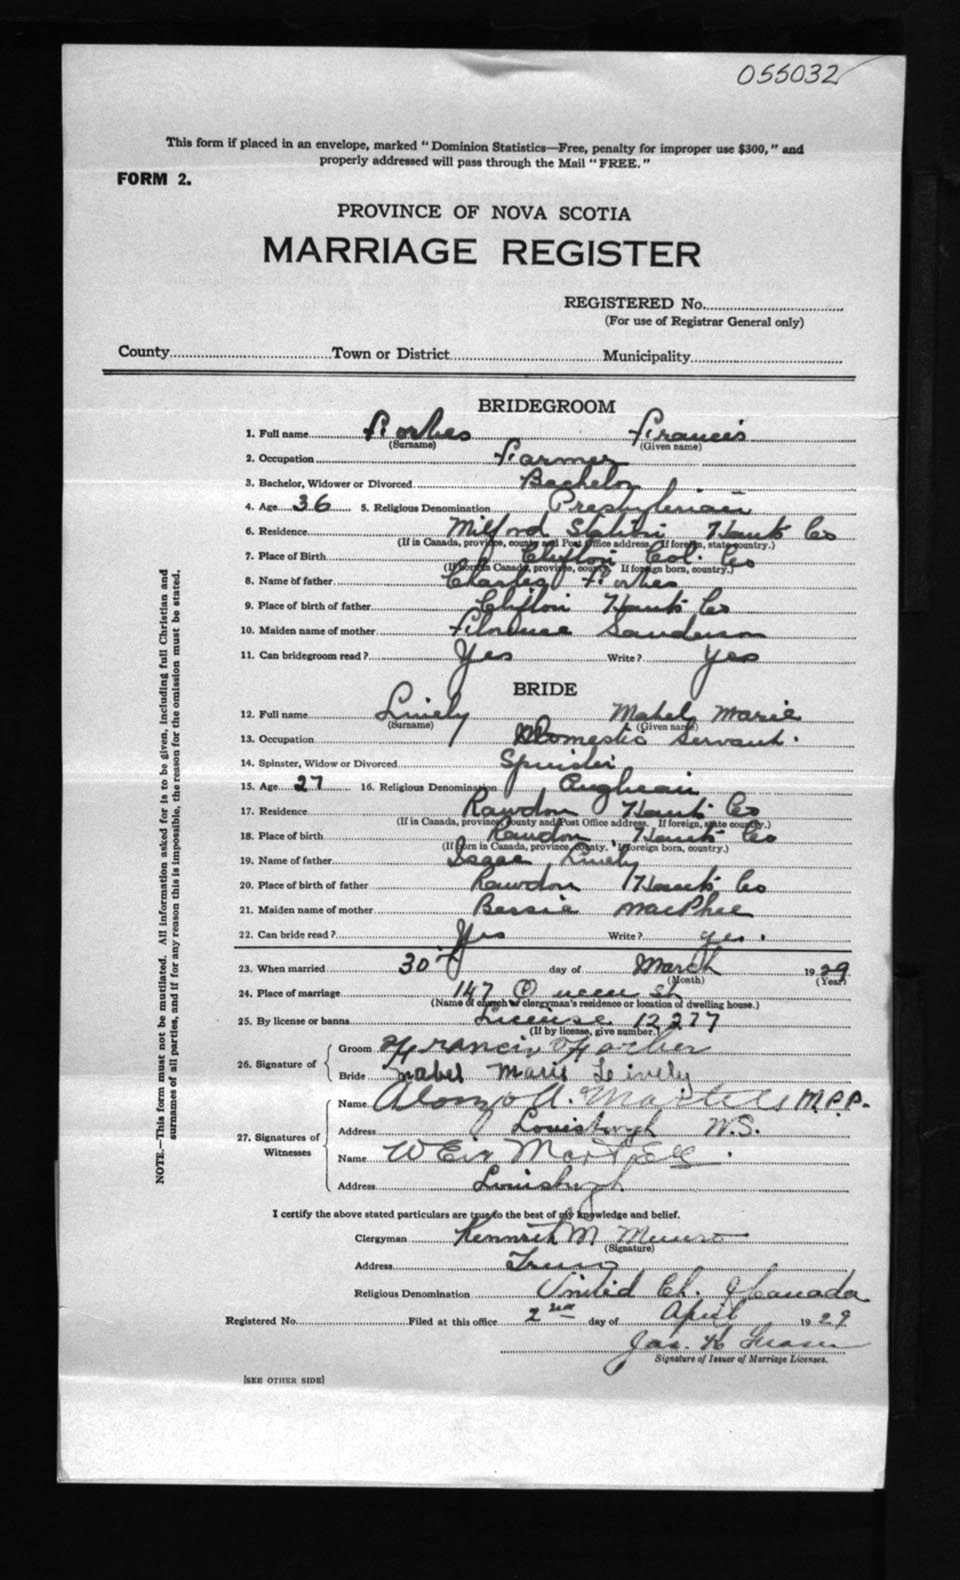 055032
This form if placed in an envelope, marked "Dominion Statistics—Free, penalty for improper use $300," and
properly addressed will pass through the Mail "FREE."
FORM 2.
PROVINCE OF NOVA SCOTIA
MARRIAGE REGISTER
REGISTERED No.
(For use of Registrar General only)
County Town or District Municipality
BRIDEGROOM
1. Full name Forbes Francis
(Surname) (Given name)
2. Occupation Farmer
3. Bachelor, Widower or Divorced Bachelor
4. Age 36 5. Religious Denomination Presbyterian
6. Residence Milford Station Hants Co
(If in Canada, province, county and Post Office address. If foreign, state country.)
7. Place of Birth Clifton Col. Co
(If born in Canada, province, county. If foreign born, country.)
8. Name of father Charles Forbes
9. Place of birth of father Clifton Hants Co
10. Maiden name of mother Florence Sanderson
11. Can bridegroom read? Yes Write? Yes
BRIDE
12. Full name Lively Mabel Marie
(Surname) (Given name)
13. Occupation Domestic Servant.
14. Spinster, Widow or Divorced Spinster
15. Age 27 16. Religious Denomination Anglican
17. Residence Rawdon Hants Co
(If in Canada, province, county and Post Office address. If foreign, state country.)
18. Place of birth Rawdon Hants Co
(If born in Canada, province, county. If foreign born, country.)
19. Name of father Isaac Lively
20. Place of birth of father Rawdon Hants Co
21. Maiden name of mother Bessie MacPhee
22. Can bride read? Yes Write? yes.
23. When married 30th day of March 1929
(Month) (Year)
24. Place of marriage 147 Queen St
(Name of church or clergyman's residence or location of dwelling house.)
25. By license or banns License 12277
(If by license, give number.)
26. Signature of
Groom Francis Forbes
Bride Mabel Marie Lively
27. Signatures of Witnesses
Name Alonzo A. Martell M.P.P.
Address Louisburgh N.S.
Name Weir Martell.
Address Louisburgh
I certify the above stated particulars are true to the best of my knowledge and belief.
Clergyman Kenneth M Munro
(Signature)
Address Truro
Religious Denomination United Ch. of Canada
Registered No. Filed at this office 2nd day of April 1929
Jas. K Fraser
Signature of Issuer of Marriage Licenses.
[SEE OTHER SIDE]
NOTE.—This form must not be mutilated. All information asked for is to be given, including full Christian and
surnames of all parties, and if for any reason this is impossible, the reason for the omission must be stated.